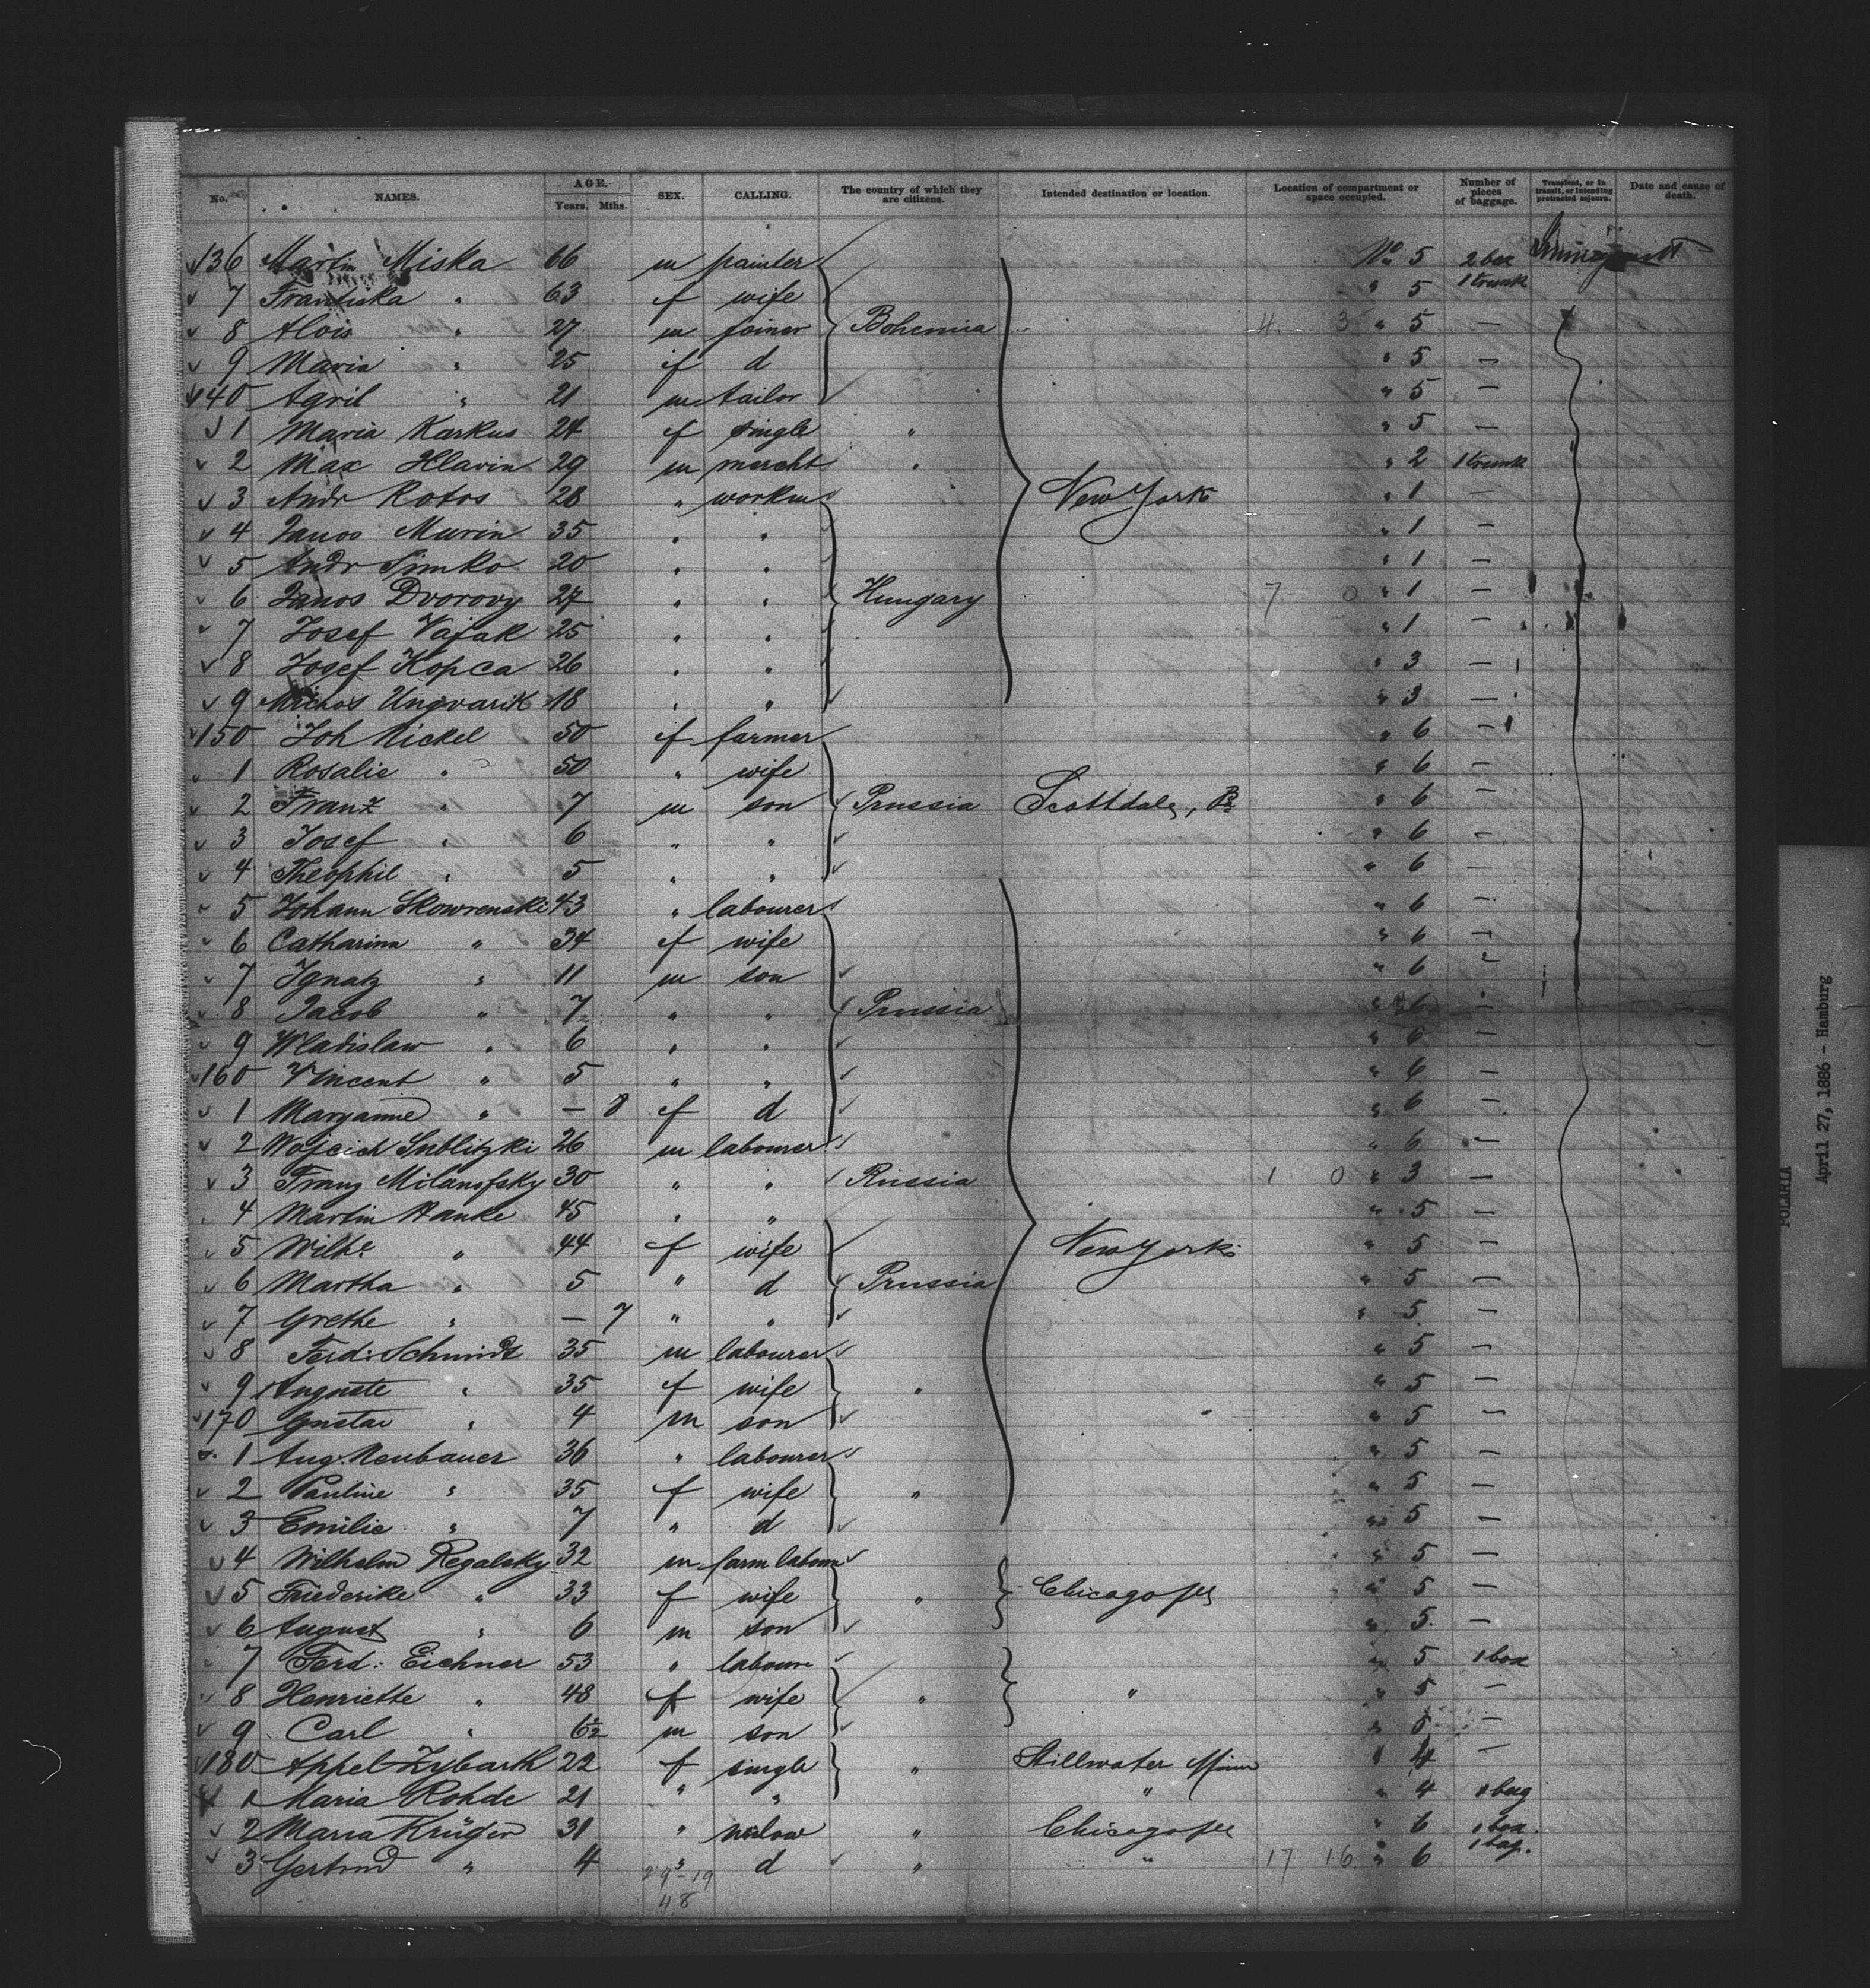 No. NAMES. AGE. Years. Mths. SEX. CALLING. The country of which they are citizens. Intended destination or location. Location of compartment or space occupied. Number of pieces of baggage. Transient, or in transit, or intending protracted sojourn. Date and cause of death.
136 Martin Miska 66 m painter No 5 2 box
7 Franziska " 63 f wife " 5 1 trunk
8 Alois " 27 m joiner Bohemia 4 3 " 5 —
9 Maria " 25 f d " 5 —
140 Agril " 21 m tailor " 5 —
1 Maria Karkus 24 f single " " 5 —
2 Max Hlavin 29 m mercht " " 2 1 trunk
3 Andr Rotos 28 " workm New York " 1 —
4 Janos Murin 35 " " " 1 —
5 Andr Simko 20 " " " 1 —
6 Janos Dvorovy 27 " " Hungary 7 0 " 1 —
7 Josef Vajak 25 " " " 1 —
8 Josef Kopca 26 " " " 3 —
9 Ungvarik 18 " " " 3 —
150 Joh Nickel 50 f farmer " 6 —
1 Rosalie " 50 " wife " 6 —
2 Franz " 7 m son Prussia Scottdale, Pa " 6 —
3 Josef " 6 " " " 6 —
4 Theophil " 5 " " " 6 —
5 Johann Skowrenski 43 " labourer " 6 —
6 Catharina " 34 f wife " 6 —
7 Ignatz " 11 m son " 6 —
8 Jacob " 7 " " Prussia " 6 —
9 Wladislaw " 6 " " " 6 —
160 Vincent " 5 " " " 6 —
1 Maryanne " — 8 f d " 6 —
2 Wojciech Sublitzki 26 m labourer " 6 —
3 Franz Milanofsky 30 " " Russia 1 0 " 3 —
4 Martin Hanke 45 " " " 5 —
5 Wilhe " 44 f wife New York " 5 —
6 Martha " 5 " d Prussia " 5 —
7 Grethe " — 7 " " " 5 —
8 Ferd: Schmidt 35 m labourer " 5 —
9 Auguste " 35 f wife " " 5 —
170 Gustav " 4 m son " 5 —
1 Aug. Neubauer 36 " labourer " 5 —
2 Pauline " 35 f wife " " 5 —
3 Emilie " 7 " d " 5 —
4 Wilhelm Regalsky 32 m farm labour " 5 —
5 Friederike " 33 f wife " Chicago Jlls " 5 —
6 August " 6 m son " 5 —
7 Ferd: Eichner 53 " laboure " 5 1 box
8 Henriette " 48 f wife " " " 5 —
9 Carl " 6½ m son " 5 —
180 Appel Zybarth 22 f single " Stillwater Minn " 4 —
1 Maria Rohde 21 " " " " 4 1 bag
2 Maria Krüger 31 " widow " Chicago Jlls " 6 1 box
3 Gertrud " 4 " d " " 17 16 " 6 1 bag.
29-19
48
POLARIA
April 27, 1886 - Hamburg